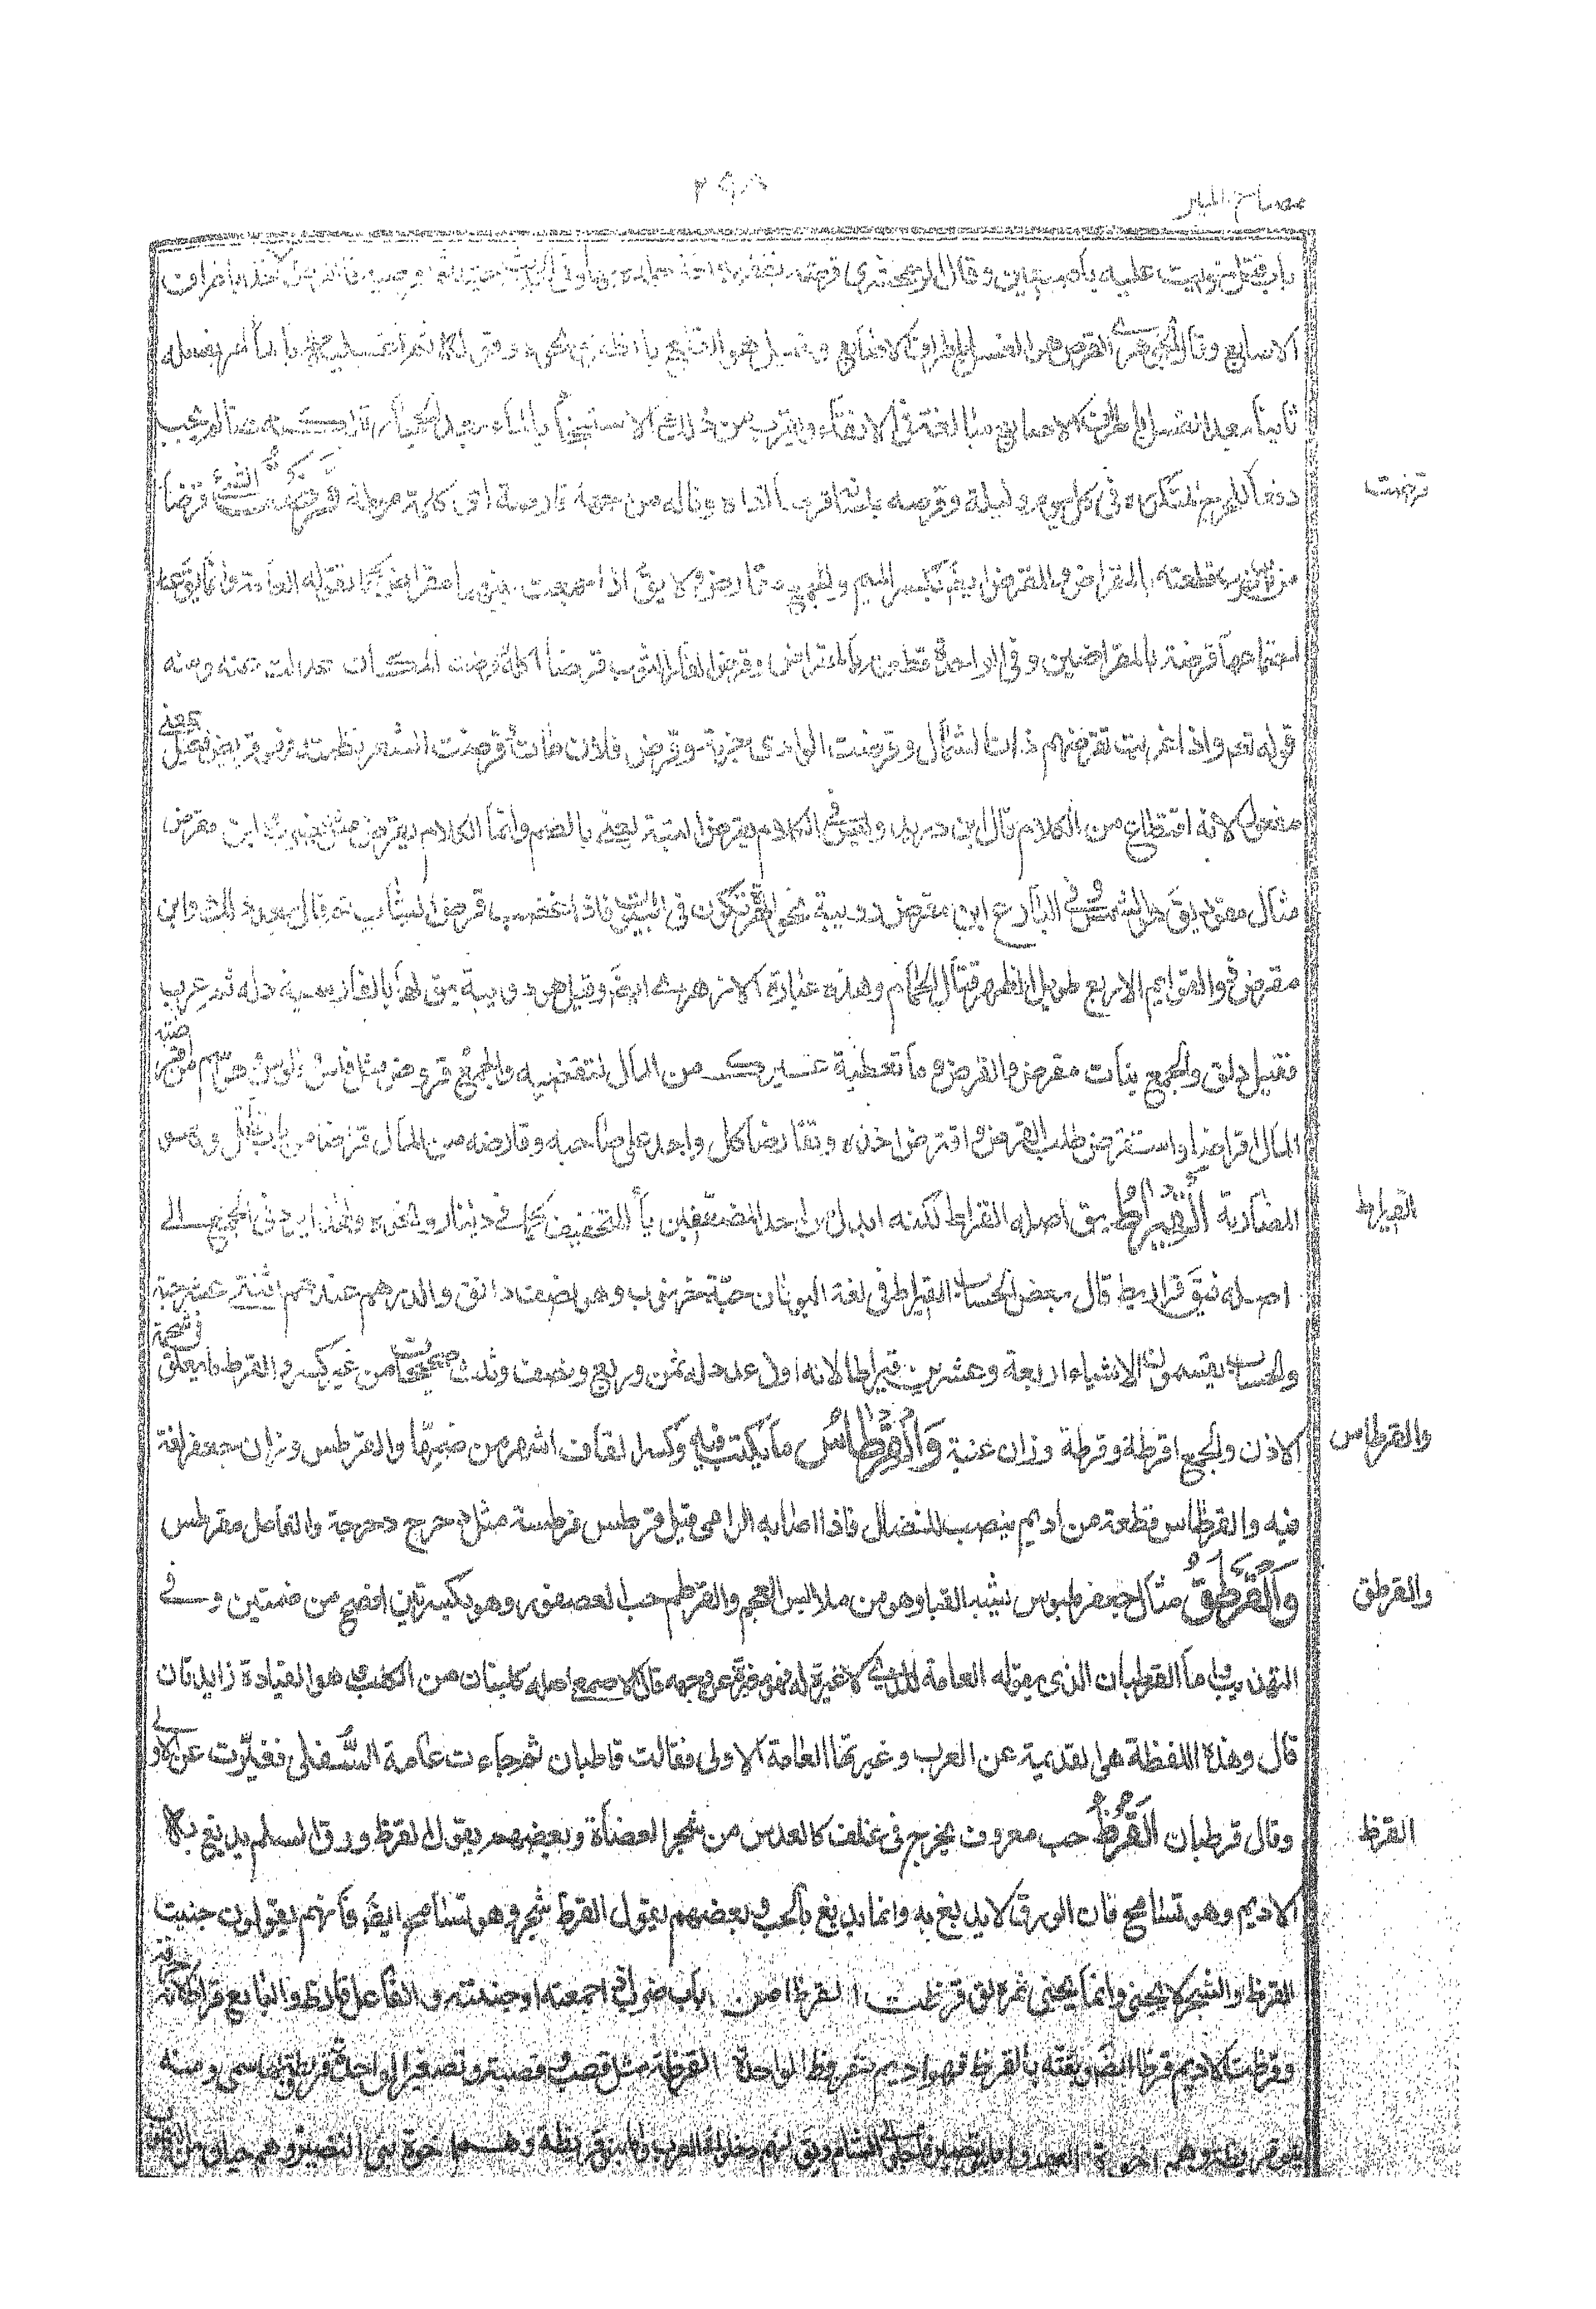 مصباح المنير
٢٩٨
باب قتل لويت عليه باصبعين وقال الزمخشرى قرصه بظفريه اخذ جلده بهما وفى الحديث حتيه ثم اقرصيه فالقرص الاخذ باطراف
الاصابع وقال الجوهرى القرص هو الغسل باطراف الاصابع وقيل هو القلع بالظفر ونحوه
ثانيا بعد الغسل باطراف الاصابع مبالغة فى الانقاء ويقرب من ذلك الاستنجاء بالماء بعد الحجارة
دفعا للحرج المتكرر فى كل يوم وليلة وقرصه بلسانه قرصا اذاه وناله من جهة قارصة اى كلمة مولمة قَرَضْتُ الشئ قرضا
قرضت
من باب ضرب قطعته بالمقراض والمقراض ايضا بكسر الميم والجمع مقاريض ولا يق اذا جمعت بينهما مقراض كما تقوله العامة وانما يق عند
اجتماعهما قرضته بالمقراضين وفى الواحدة قطعته بالمقراض وقرض الفار الثوب قرضا اكله وقرضت المكان عدلت عنه ومنه
قوله تع واذا غربت تقرضهم ذات الشمال وقرضت الوادى جزته وقرض فلان مات وقرضت الشعر نظمته فهو قريض فعيل بمعنى
مفعول لانه اقتطاع من الكلام قال ابن دريد وليس فى الكلام يقرض البتة يعنى بالضم وانما الكلام يقرض مثل يضرب وابن مقرض
مثال مقود يق هو النمس وفى البارع ابن مقرض دويبة نحو الهر تكون فى البيوت فاذا غضب قرض الثياب ثم قال بعد ذلك وابن
مقرض ذو القوايم الاربع طويل الظهر قتال الحمام وهذه عبارة الازهرى ايضا وقيل هو دويبة يق لها بالفارسية دله ثم عرب
فقيل دلق والجمع بنات مقرض والقرض ما تعطيه غيرك من المال لتقضيه والجمع قروض مثل فلس وفلوس وهو اسم من اقرضته
المال اقراضا واستقرض طلب القرض واقترض اخذه وتقارضا كل واحد على صاحبه وقارضه من المال قراضا من باب قاتل وهى
المضاربة اَلْقِيْرَاطُ يق اصله القراط لكنه ابدل من احد المضعفين ياء للتخفيف كما فى دينار ونحوه ولهذا يرد فى الجمع الى
القيراط
اصله فيق قراريط قال بعض الحساب القيراط فى لغة اليونان حبة خرنوب وهو نصف دانق والدرهم عندهم اثنتا عشرة حبة
والحساب يقسمون الاشياء اربعة وعشرين قيراطا لانه اول عدد له ثمن وربع ونصف وثلث صحيحات من غير كسر والقرط ما يعلق فى شحمة
الاذن والجمع اقرطة وقرطة وزان عنبة وَاَلْقِرْطَاسُ ما يكتب فيه وكسر القاف اشهر من ضمها والقرطس وزان جعفر لغة
والقرطاس
فيه والقرطاس قطعة من اديم ينصب للنضال فاذا اصابه الرامى قيل قرطس قرطسة مثل دحرج دحرجة والفاعل مقرطس
وَاَلْقَرْطَقُ مثال جعفر ملبوس يشبه القبا وهو من ملابس العجم والقرطم حب العصفور وهو بكسرتين افصح من ضمتين وفى
والقرطق
التهذيب اما القرطبان الذى يقوله العامة للذى لا غيرة له فهو مغير عن وجهه قال الاصمعى اصله كلبتان من الكلب وهو القيادة زايدتان
قال وهذه اللفظة هى القديمة عن العرب وغيرتها العامة الاولى فقالت قلطبان ثم جاءت عامة السُّفلى فغيّرت عن الاولى
وقال قرطبان اَلْقَرَظُ حب معروف يخرج فى غلف كالعدس من شجر العضاة وبعضهم يقول القرظ ورق السلم يدبغ به
القرظ
الاديم وهو تسامح فان الورق لا يدبغ به وانما يدبغ بالحب وبعضهم يقول القرظ شجر وهو تسامح ايضا فانهم يقولون جنيت
القرظ والشجر لا يجنى وانما يجنى ثمره يق قرظت القرظ من باب ضرب اى جمعته او جنيته والفاعل قارظ والبايع قراظ
وقرظت الاديم قرظا ايضا دبغته بالقرظ فهو اديم مقروظ الواحدة القرظة مثل قصب وقصبة وتصغير الواحدة قريظة وبها سمى ومنه
بنو قريظة وهم اخوة